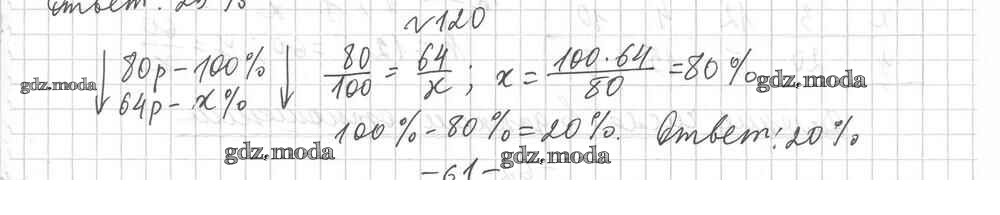 Ответ: 25 %
№120
80р – 100% 80/100 = 64/x ; x = 100·64/80 = 80 %
64р – x%
100 % – 80 % = 20 %. Ответ: 20 %
gdz.moda
gdz.moda
gdz.moda
gdz.moda
– 61 –